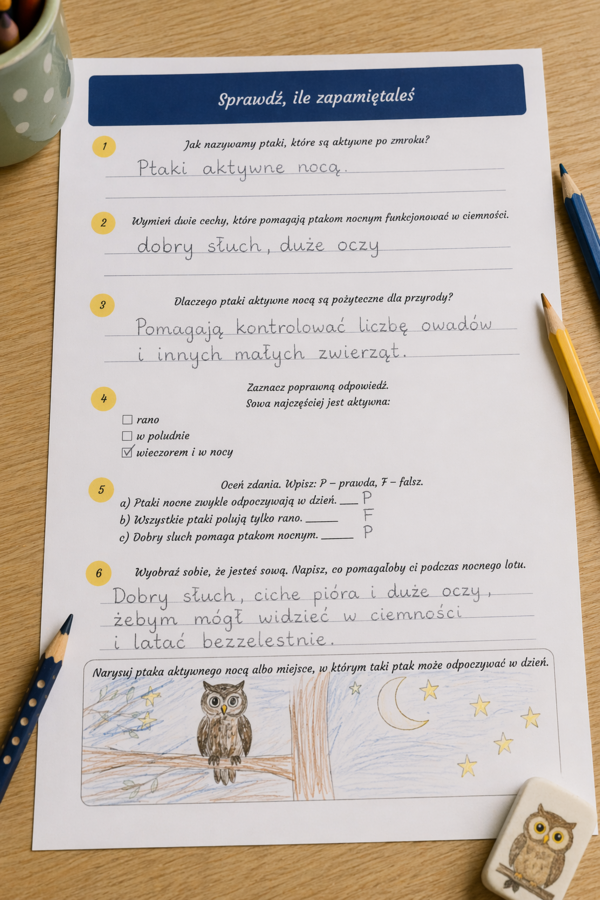 Sprawdź, ile zapamiętałeś
1
Jak nazywamy ptaki, które są aktywne po zmroku?
Ptaki aktywne nocą.
2
Wymień dwie cechy, które pomagają ptakom nocnym funkcjonować w ciemności.
dobry słuch, duże oczy
3
Dlaczego ptaki aktywne nocą są pożyteczne dla przyrody?
Pomagają kontrolować liczbę owadów
i innych małych zwierząt.
4
Zaznacz poprawną odpowiedź.
Sowa najczęściej jest aktywna:
☐ rano
☐ w południe
☑ wieczorem i w nocy
5
Oceń zdania. Wpisz: P – prawda, F – falsz.
a) Ptaki nocne zwykle odpoczywają w dzień. ___ P
b) Wszystkie ptaki polują tylko rano. _____ F
c) Dobry sluch pomaga ptakom nocnym. _____ P
6
Wyobraź sobie, że jesteś sową. Napisz, co pomagałoby ci podczas nocnego lotu.
Dobry słuch, ciche pióra i duże oczy,
żebym mógł widzieć w ciemności
i latać bezzelestnie.
Narysuj ptaka aktywnego nocą albo miejsce, w którym taki ptak może odpoczywać w dzień.